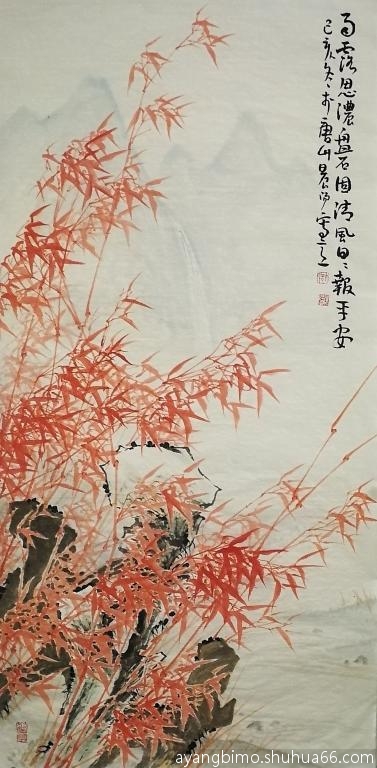 雨露恩濃盤石固清風日日報平安
己亥冬於唐山晨
ayangbimo.shuhua66.com